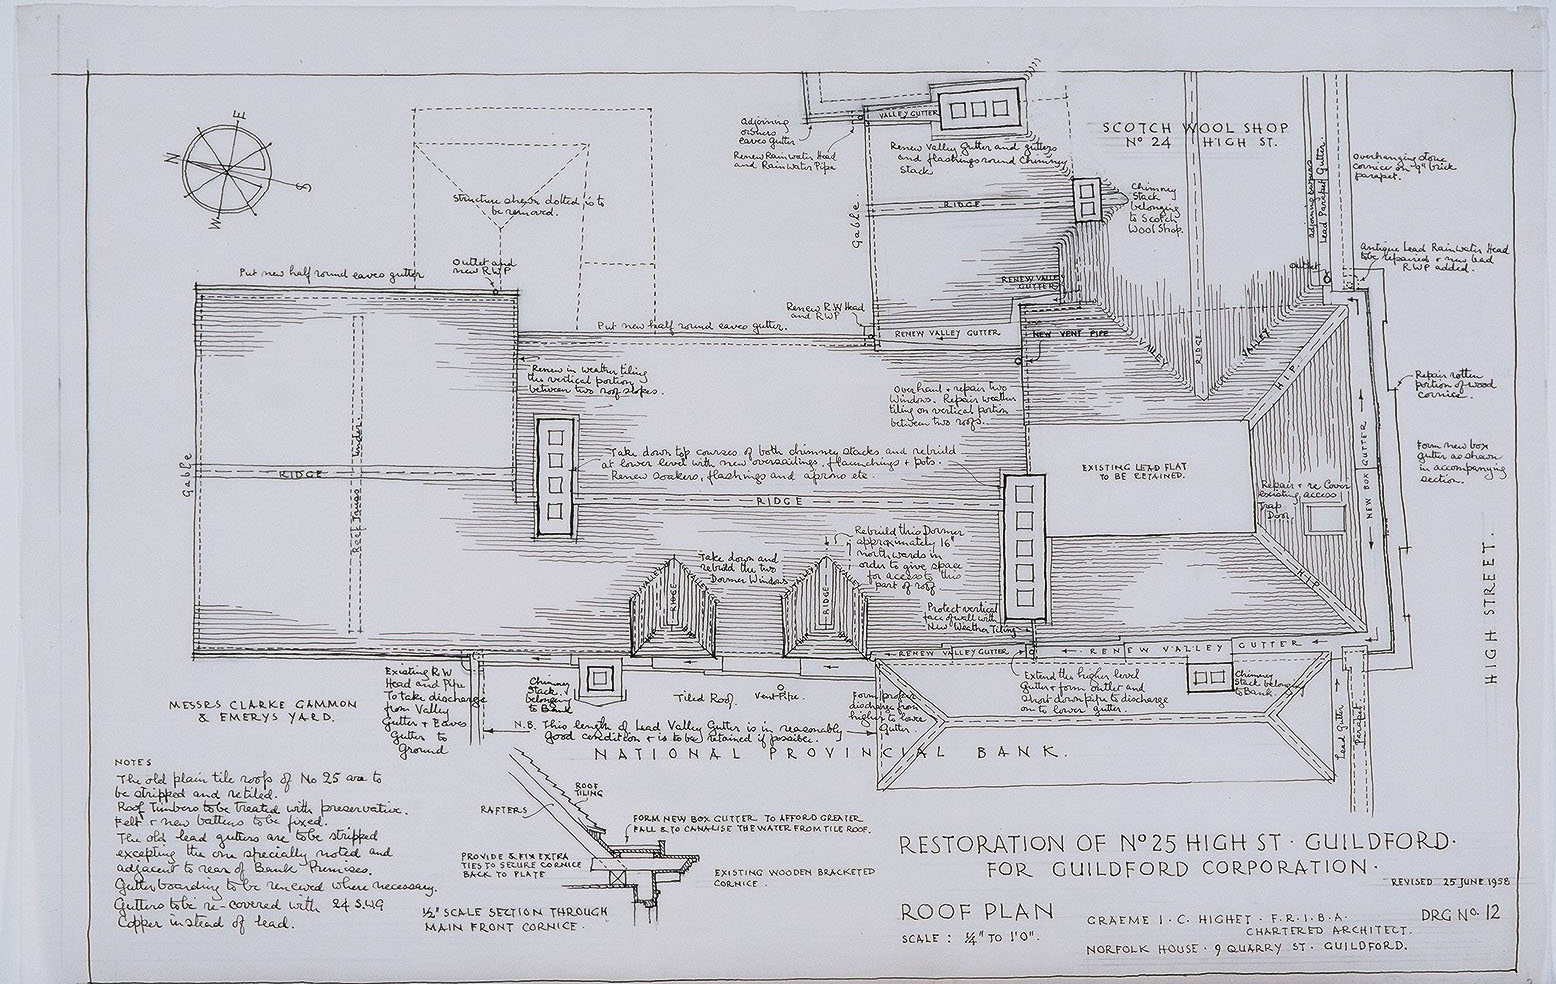 E
N
S
W
Structure shewn dotted is to
be removed.
Put new half round eaves gutter
Outlet and
new R.W.P
Adjoining
owners
eaves gutter
Renew Rainwater Head
and RainWater Pipe
VALLEY GUTTER
Renew Valley Gutter and gutters
and flashings round Chimney
stack
SCOTCH WOOL SHOP
No 24 HIGH ST.
adjoining owners
Lead Parapet Gutter.
overhanging stone
cornice on 9" brick
parapet.
Gable.
RIDGE
Chimney
Stack
belonging
to Scotch
Wool Shop.
Antique Lead RainWater Head
to be repaired + new lead
RWP added.
outlet
RENEW VALLEY
GUTTER
Renew R.W Head
and RWP
Put new half round eaves gutter.
RENEW VALLEY GUTTER
NEW VENT PIPE
VALLEY
RIDGE
VALLEY
HIP
Renew in weather tiling
the vertical portion
between two roof slopes.
Overhaul + repair two
Windows. Repair weather
tiling on vertical portion
between two roofs.
Repair rotten
portion of wood
cornice.
Take down top courses of both chimney stacks and rebuild
at lower level with new oversailings, flaunchings + pots.
Renew soakers, flashings and aprons etc.
EXISTING LEAD FLAT
TO BE RETAINED.
Form new box
gutter as shewn
in accompanying
section.
NEW BOX GUTTER
Repair + re Cover
existing access
Trap
Door.
Gable
RIDGE
Roof Truss under.
RIDGE
Take down and
rebuild the two
Dormer Windows
Rebuild this Dormer
approximately 16"
northwards in
order to give space
for access to this
part of roof
VALLEY
RIDGE
VALLEY
VALLEY
RIDGE
VALLEY
HIP
Protect vertical
face of wall with
New Weather Tiling
RENEW VALLEY GUTTER
RENEW VALLEY GUTTER
HIGH STREET.
Existing RW
Head and Pipe
To take discharge
from Valley
Gutter + Eaves
Gutter to
Ground
Chimney
Stack
belonging
to Bank
Tiled Roof.
Vent Pipe.
Form proper
discharge from
higher to lower
Gutter.
Extend this higher level
Gutter + form outlet and
short down pipe to discharge
on to lower gutter.
Chimney
Stack belong
to Bank.
Lead Gutter
Parapet.
MESSRS CLARKE GAMMON
& EMERYS YARD.
N.B. This length of Lead Valley Gutter is in reasonably
good condition + is to be retained if possible.
NATIONAL PROVINCIAL BANK.
NOTES
The old plain tile roofs of No 25 are to
be stripped and retiled.
Roof Timbers to be treated with preservative.
Felt + new battens to be fixed.
The old lead gutters are to be stripped
excepting the one specially noted and
adjacent to rear of Bank Premises.
Gutter boarding to be renewed where necessary.
Gutters to be re-covered with 24 S.WG
Copper instead of lead.
ROOF
TILING
RAFTERS
FORM NEW BOX GUTTER TO AFFORD GREATER
FALL & TO CANALISE THE WATER FROM TILE ROOF.
PROVIDE & FIX EXTRA
TIES TO SECURE CORNICE
BACK TO PLATE
EXISTING WOODEN BRACKETED
CORNICE.
½" SCALE SECTION THROUGH
MAIN FRONT CORNICE.
RESTORATION OF No 25 HIGH ST · GUILDFORD·
FOR GUILDFORD CORPORATION·
REVISED 25 JUNE 1958
ROOF PLAN
SCALE : ¼" TO 1'0".
GRAEME I · C · HIGHET · F · R · I · B · A ·
CHARTERED ARCHITECT.
NORFOLK HOUSE · 9 QUARRY ST · GUILDFORD.
DRG No. 12